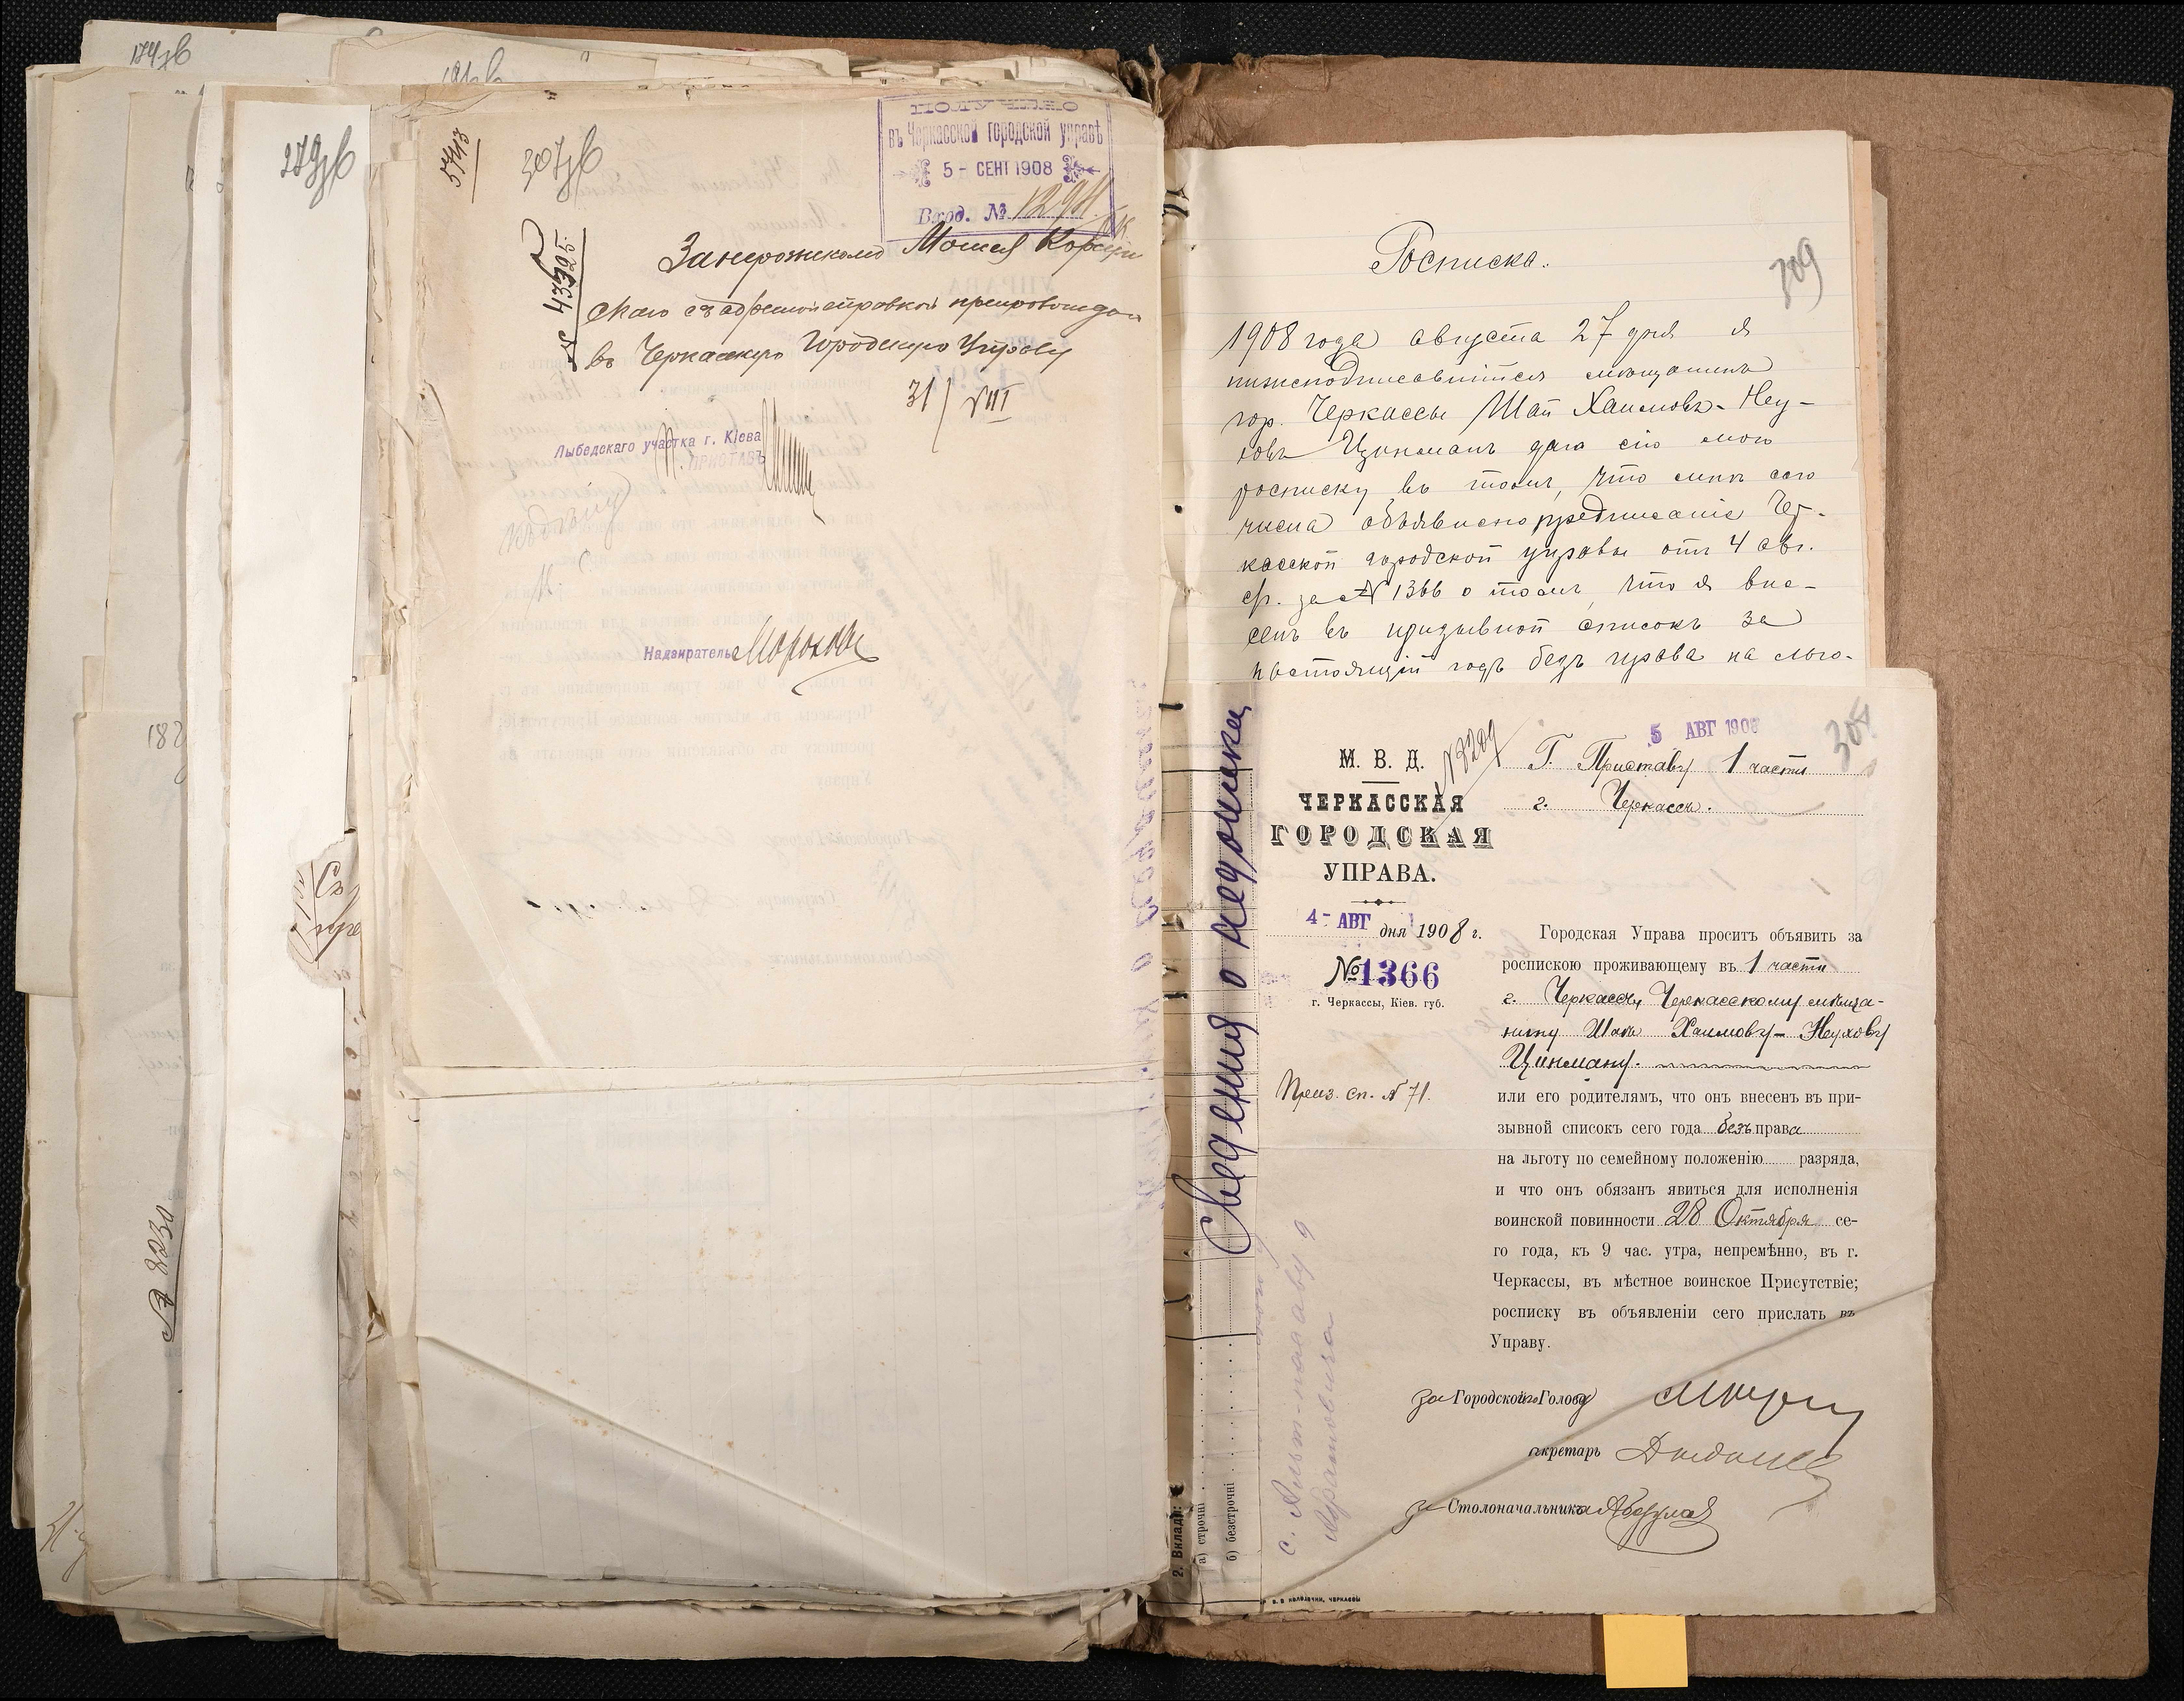 174 зв
279 зв
307 зв
5743
№ 43395.
въ Черкасской городской управѣ
5 - СЕНТ 1908
Вход. №
Мошея Корсун
скаго съ адресной справкой препровождаю
въ Черкасскую Городскую Управу
31/VIII
Лыбедскаго участка г. Кіева
П. ПРИСТАВЪ
Надзиратель
182
№ 8230
Росписка.
309
1908 года августа 27 дня я
нижеподписавшійся мѣщанинъ
гор. Черкассы Шая Хаимовъ-Неу-
ховъ Цукманъ далъ сію мою
росписку въ томъ, что мнѣ сего
числа объявлено предписаніе Чер-
касской городской управы отъ 4 авг.
с/г. за № 1366 о томъ, что я вне-
сенъ въ призывной списокъ за
настоящій годъ безъ права на льго-
308
5 АВГ 1908
М. В. Д.
№ 3209
Г. Приставу 1 части
г. Черкассы.
ЧЕРКАССКАЯ
ГОРОДСКАЯ
УПРАВА.
4 - АВГ дня 1908 г.
№ 1366
г. Черкассы, Кіев. губ.
Приз. сп. № 71.
Городская Управа проситъ объявить за
роспискою проживающему въ 1 части
г. Черкассъ, Черкасскому мѣща-
нину Шаѣ Хаимову-Неухову
Цукману.
или его родителямъ, что онъ внесенъ въ при-
зывной списокъ сего года безъ права
на льготу по семейному положенію разряда,
и что онъ обязанъ явиться для исполненія
воинской повинности 28 Октября се-
го года, къ 9 час. утра, непремѣнно, въ г.
Черкассы, въ мѣстное воинское Присутствіе;
росписку въ объявленіи сего прислать въ
Управу.
за Городского Голову
Секретарь
за Столоначальника
Сведения о недоимки
2. Вкладів:
а) строчні
б) безстрочні